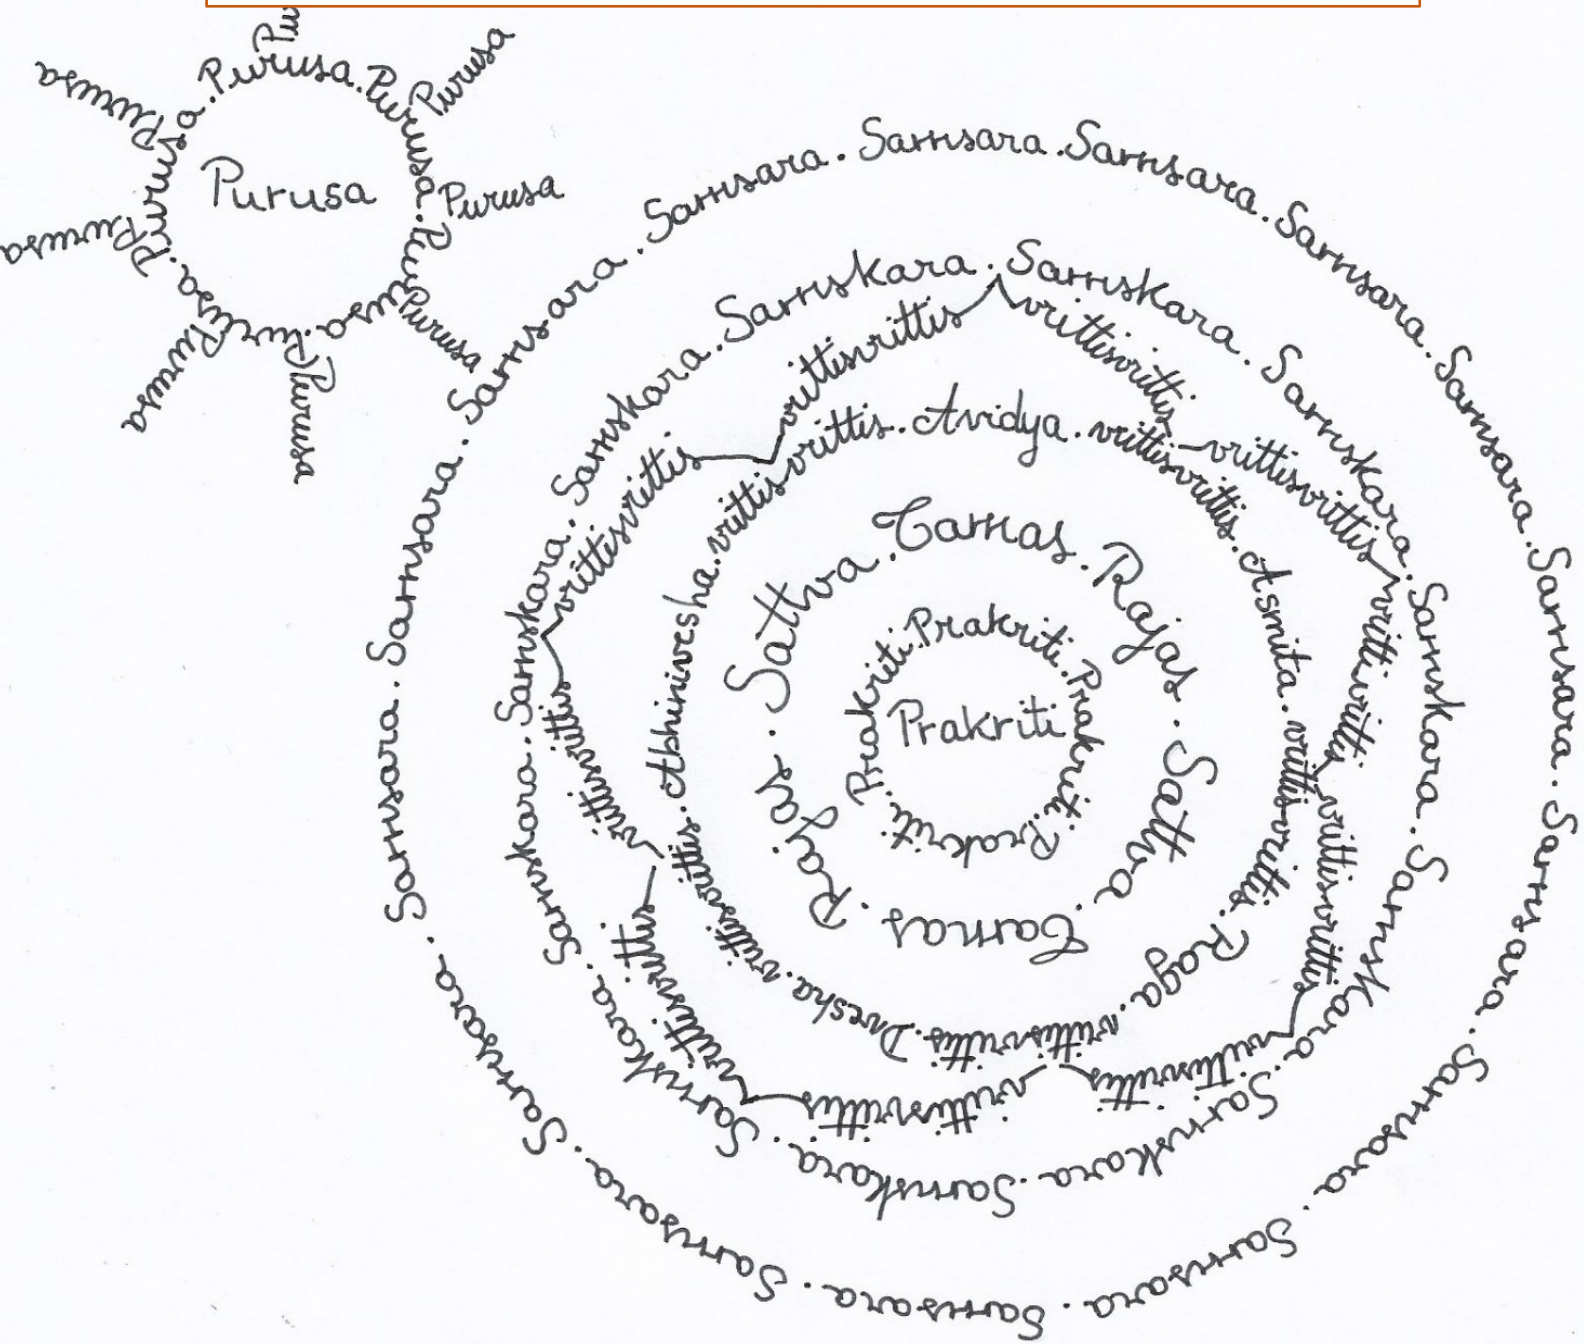 Pu
Purusa
Purusa
Purusa
Purusa
Purusa
Purusa
Purusa
Purusa. Purusa. Purusa. Purusa. Purusa.
Purusa
Samsara. Samsara. Samsara. Samsara. Samsara. Samsara. Samsara. Samsara. Samsara. Samsara. Samsara. Samsara. Samsara. Samsara. Samsara.
Samskara. Samskara. Samskara. Samskara. Samskara. Samskara. Samskara. Samskara. Samskara. Samskara. Samskara.
vrittisvrittis
vrittisvrittis
vrittisvrittis
vrittisvrittis
vrittisvrittis
vrittisvrittis
vrittisvrittis
vrittisvrittis
vrittisvrittis
vrittisvrittis
Avidya. vrittisvrittis. Asmita. vrittisvrittis. Raga. vrittisvrittis. Dvesha. vrittisvrittis. Abhinivesha. vrittisvrittis.
Tamas. Rajas. Sattva. Tamas. Rajas. Sattva.
Prakriti. Prakriti. Prakriti. Prakriti.
Prakriti